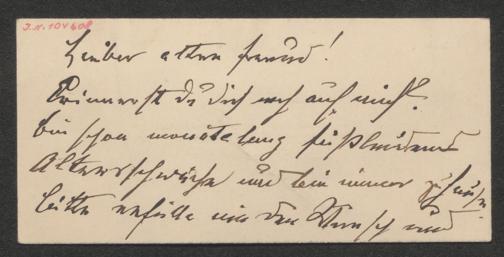 J.N. 104608
Lieber alter Freund!
Erinnerst du dich noch auf mich?
bin schon monatelang fußleidend
Altersschwäche und bin immer zuhause
bitte erfülle mir den Wunsch und